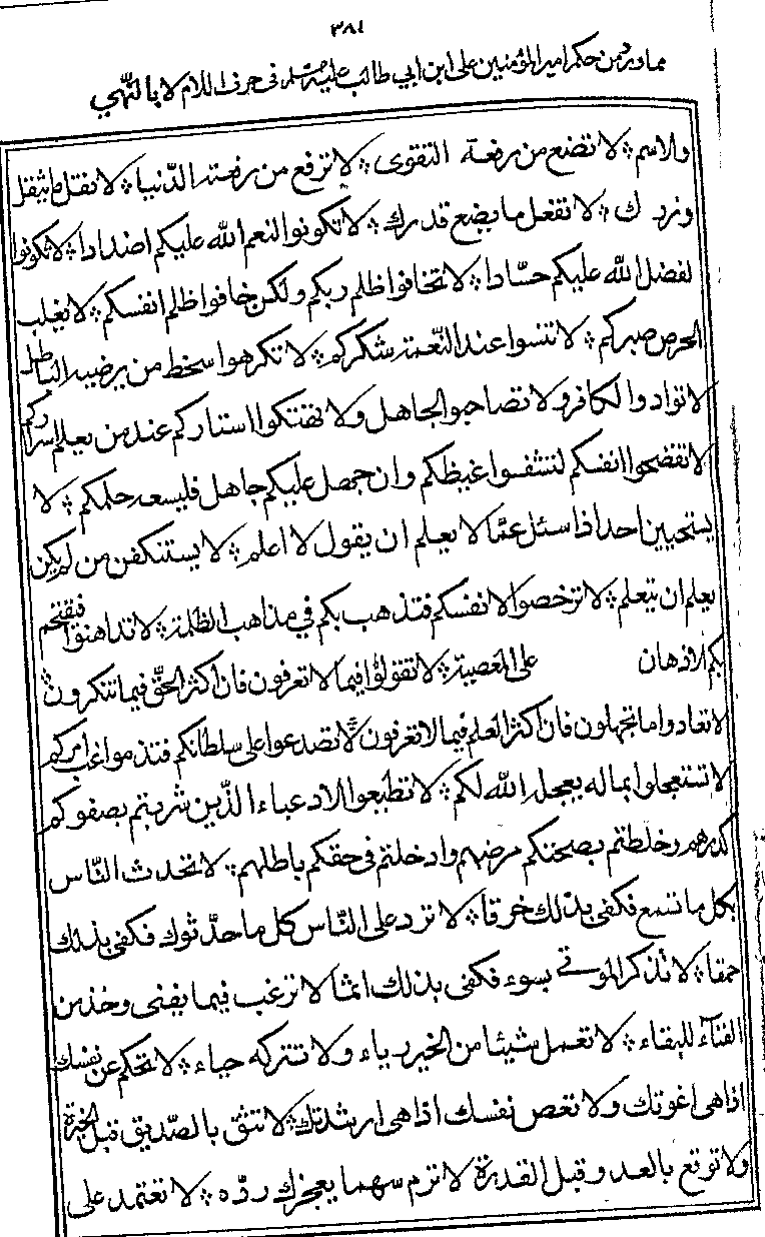 ٣٨٤
مما ورد من حكم امير المؤمنين على ابن ابي طالب عليه فى حرف اللام لا بالنّهي
والاسم ؛ لا تضع من رفعة التقوى ؛ لا ترفع من رفعته الدّنيا ؛ لا تقل ما يثقل
وزرك ؛ لا تفعل ما يضع قدرك ؛ لا تكونوا لنعم الله عليكم اضدادا ؛ لا تكونوا
لفضل الله عليكم حسّادا ؛ لا تخافوا ظلم ربكم ولكن خافوا ظلم انفسكم ؛ لا يغلب
الحرص صبركم ؛ لا تنسوا عند النّعمة شكركم ؛ لا تكرهوا سخط من يرضيه الباطل
لا توادوا الكافر ولا تصاحبوا الجاهل ولا تهتكوا استاركم عند من يعلم اسراركم
لا تفضحوا انفسكم لتشفوا غيظكم وان جهل عليكم جاهل فليسعه حلمكم ؛ لا
يستحيين احد اذا سئل عمّا لا يعلم ان يقول لا اعلم ؛ لا يستنكفن من لم يكن
يعلم ان يتعلم ؛ لا ترخصوا لانفسكم فتذهب بكم في مذاهب الظلمة ؛ لا تداهنوا فيقتحم
بكم الاذهان على المعصية ؛ لا تقولوا فيما لا تعرفون فان اكثر الحقّ فيما تنكرون
لا تعادوا ما تجهلون فان اكثر العلم فيما لا تعرفون لا تصدعوا على سلطانكم فتذموا غب امركم
لا تستعجلوا بما لم يعجله الله لكم ؛ لا تطيعوا الادعياء الذّين شربتم بصفوكم
كدرهم وخلطتم بصحتكم مرضهم وادخلتم فى حقكم باطلهم ؛ لا تحدث النّاس
بكل ما تسمع فكفى بذلك خرقا ؛ لا ترد على النّاس كل ما حدّثوك فكفى بذلك
حمقا ؛ لا تذكر الموتى بسوء فكفى بذلك اثما لا ترغب فيما يفنى وخذ من
الفنآء للبقاء ؛ لا تعمل شيئا من الخير رياء ولا تتركه حياء ؛ لا تحكم عن نفسك
اذا هى اغوتك ولا تعص نفسك اذا هى ارشدتك ؛ لا تثق بالصّديق قبل الخبرة
ولا توقع بالعدو قبل القدرة لا ترم سهما يعجزك ردّه ؛ لا تعتمد على